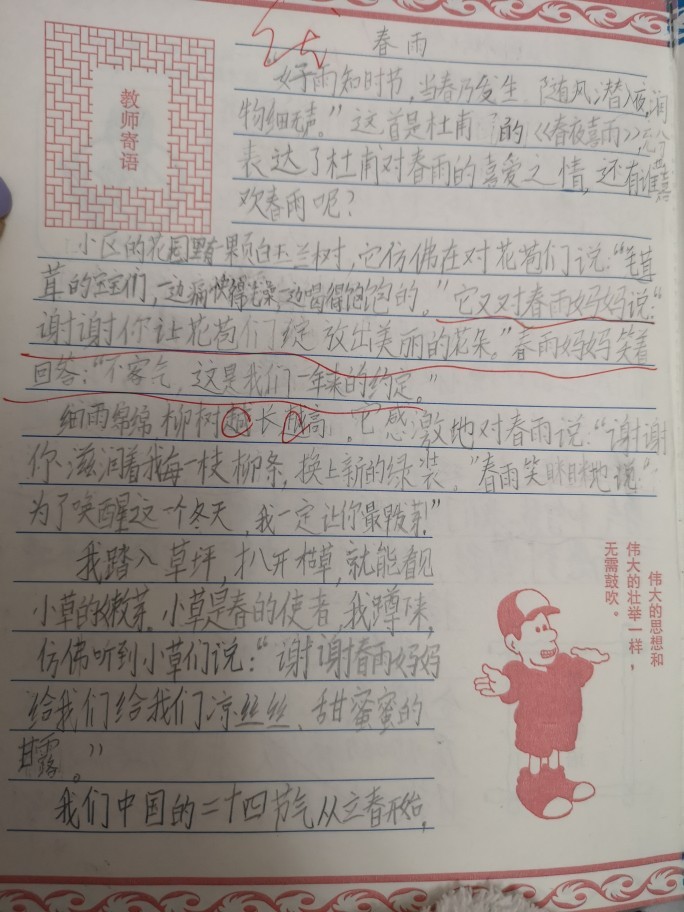 春雨
教师寄语
好雨知时节,当春乃发生 随风潜入夜,润
物细无声。”这首是杜甫 的《春夜喜雨》,
表达了杜甫对春雨的喜爱之情,还有谁喜
欢春雨呢?
小区的花园里有一颗白玉兰树,它仿佛在对花苞们说:“毛茸
茸的宝宝们, 边 得 ,边喝得饱饱的。”它又对春雨妈妈说:“
谢谢你让花苞们绽放出美丽的花朵。”春雨妈妈笑着
回答:“不客气,这是我们一年来的约定。”
细雨绵绵 柳树越长越高,。它感激地对春雨说:“谢谢
你滋润着我每一枝柳条,换上新的绿装。”春雨笑眯眯地说“
为了唤醒这一个冬天,我一定让你最早发芽!”
我踏入草坪,扒开枯草,就能看见
小草的嫩芽。小草是春的使者,我蹲下来,
仿佛听到小草们说:“谢谢春雨妈妈
给我们给我们凉丝丝、甜蜜蜜的
甘露。”
我们中国的二十四节气从立春开始,
伟大的思想和
伟大的壮举一样,
无需鼓吹。